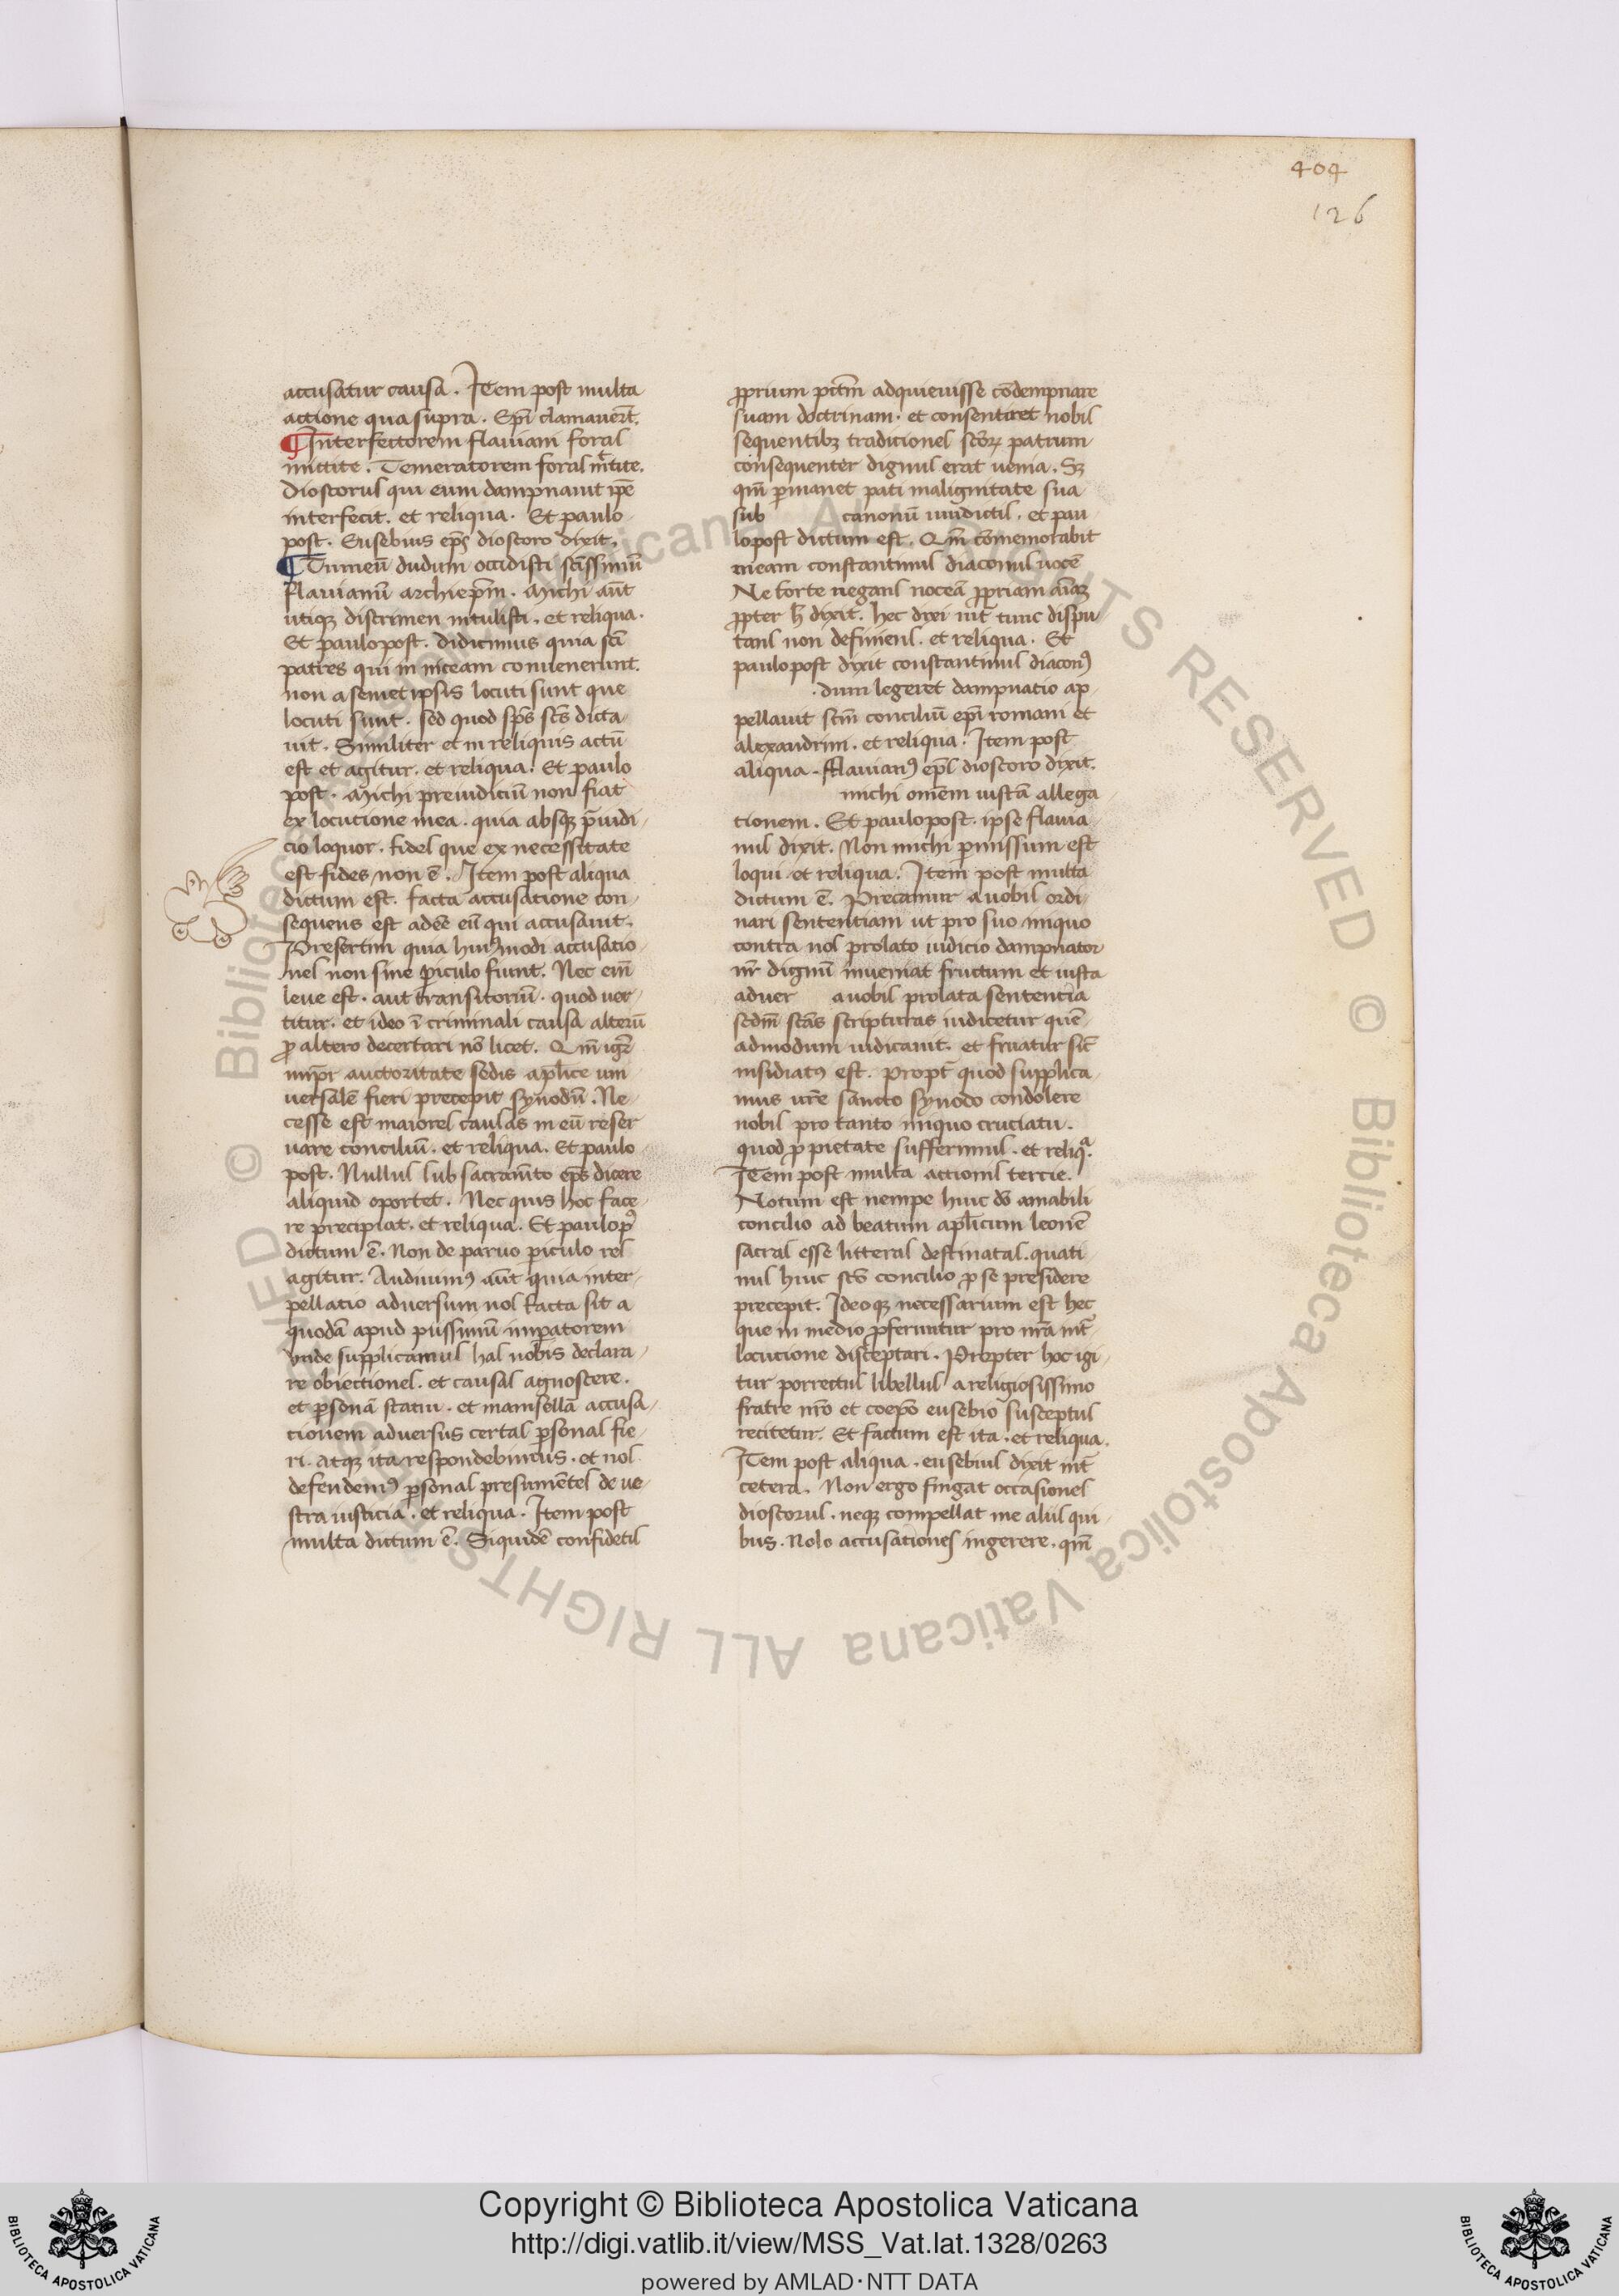 404
126
accusatur causa. Item post multa
actione qua supra. Ep̄i clamauer̄t.
Interfectorem flauiani foras
mittite. Temeratorem foras mͬtite.
Dioscorus qui eum dampnauit ip̄e
interfecit. et reliqua. Et paulo
post. Eusebius ep̄s dioscoro dixit.
Tu meū dudum occidisti sc̄issimū
flauianū archiep̄m. Michi aūt
utiqꝫ discrimen intulisti. et reliqua.
Et paulopost. didicimus quia sc̄i
patres qui in niceam conuenerunt.
non a semet ipsis locuti sunt que
locuti sunt. sed quod sp̄s sc̄s dicta-
uit. Similiter et in reliquis actū
est et agitur. et reliqua. Et paulo
post. Michi preiudiciū non fiat
ex locucione mea. quia absqꝫ p̄iudi-
cio loquor. fides que ex necessitate
est fides non ē. Item post aliqua
dictum est. facta accusatione con-
sequens est adēe eū qui accusauit.
Presertim quia huiꝰmodi accusatio-
nes non sine ꝑiculo fiunt. Nec em̄
leue est. aut transitoriū. quod uer-
titur. et ideo ī criminali causa alterū
ꝓ altero decertari nō licet. Qm̄ igr̄
imꝑr auctoritate sedis aplīce uni
uersalē fieri precepit synodū. Ne-
cesse est maiores causas in eū reser
uare conciliū. et reliqua. Et paulo
post. Nullus sub sacramēto ep̄s dicere
aliquid oportet. Nec quis hoc face-
re precipiat. et reliqua. Et paulopꝰ
dictum ē. Non de paruo ꝑiculo res
agitur. Audiuimꝰ aūt quia inter-
pellatio aduersum nos facta sit a
quodā apud piissimū imꝑatorem
vnde supplicamus has nobis declara-
re obiectiones. et causas agnoscere.
et ꝑsonā statui. et manifestā accusa-
cionem aduersus certas ꝑsonas fie-
ri. atqꝫ ita respondebimus. et nos
defendemꝰ ꝑsonas presumētes de ue-
stra iusticia. et reliqua. Item post
multa dictum ē. Siquidē confidetis
ꝓprium pctm̄ adquieuisse cōdempnare
suam doctrinam. et consentiret nobis
sequentibꝫ tradiciones sc̄oꝝ patrum
consequenter dignus erat uenia. Sꝫ
qm̄ ꝑmanet pati malignitate sua
sub canonū uindictis. et pau-
lopost dictum est. Qm̄ cōmemorabit
meam constantinus diaconus uocē
Ne forte negans noceā ꝓpriam aīaꝫ
ꝓpter h̄ dixit. hec dixi int̄ tunc dispu-
tans non definiens. et reliqua. Et
paulopost dixit constantinus diaconꝰ
. dum legeret dampnatio ap-
pellauit sc̄m conciliū ep̄i romani et
alexandrini. et reliqua. Item post
aliqua. flauianꝰ ep̄s dioscoro dixit.
michi omēm iustā allega-
tionem. Et paulopost. ipse flauia-
nus dixit. Non michi ꝑmissum est
loqui. et reliqua. Item post multa
dictum ē. Precamur a uobis ordi-
nari sententiam ut pro suo iniquo
contra nos prolato iudicio dampnator
nr̄ dignū inueniat fructum et iusta
aduer a uobis prolata sentencia
scdm̄ sc̄as scripturas iudicetur quē-
admodum iudicauit. et fruatur sic̄
insidiatꝰ est. Propt̄ quod supplica-
mus ur̄e sancto synodo condolere
nobis pro tanto iniquo cruciatu.
quod ꝓ pietate sufferimus. et reliqᵃ.
Item post multa actionis tercie.
Notum est nempe huic dō amabili
concilio ad beatum aplīcum leonē
sacras esse litteras destinatas. quati-
nus huic sc̄o concilio ꝓ se presidere
precepit. Ideoqꝫ necessarium est hec
que in medio ꝓferuntur pro nr̄a int̄-
locucione disceptari. Propter hoc igi-
tur porrectus libellus a religiosissimo
fratre nr̄o et coepō eusebio susceptus
recitetur. Et factum est ita. et reliqua.
Item post aliqua. eusebius dixit int̄
cetera. Non ergo fingat occasiones
dioscorus. neqꝫ compellat me aliis qui-
bus. Nolo accusationes ingerere. qm̄
Copyright © Biblioteca Apostolica Vaticana
http://digi.vatlib.it/view/MSS_Vat.lat.1328/0263
powered by AMLAD·NTT DATA
BIBLIOTECA APOSTOLICA VATICANA
BIBLIOTECA APOSTOLICA VATICANA